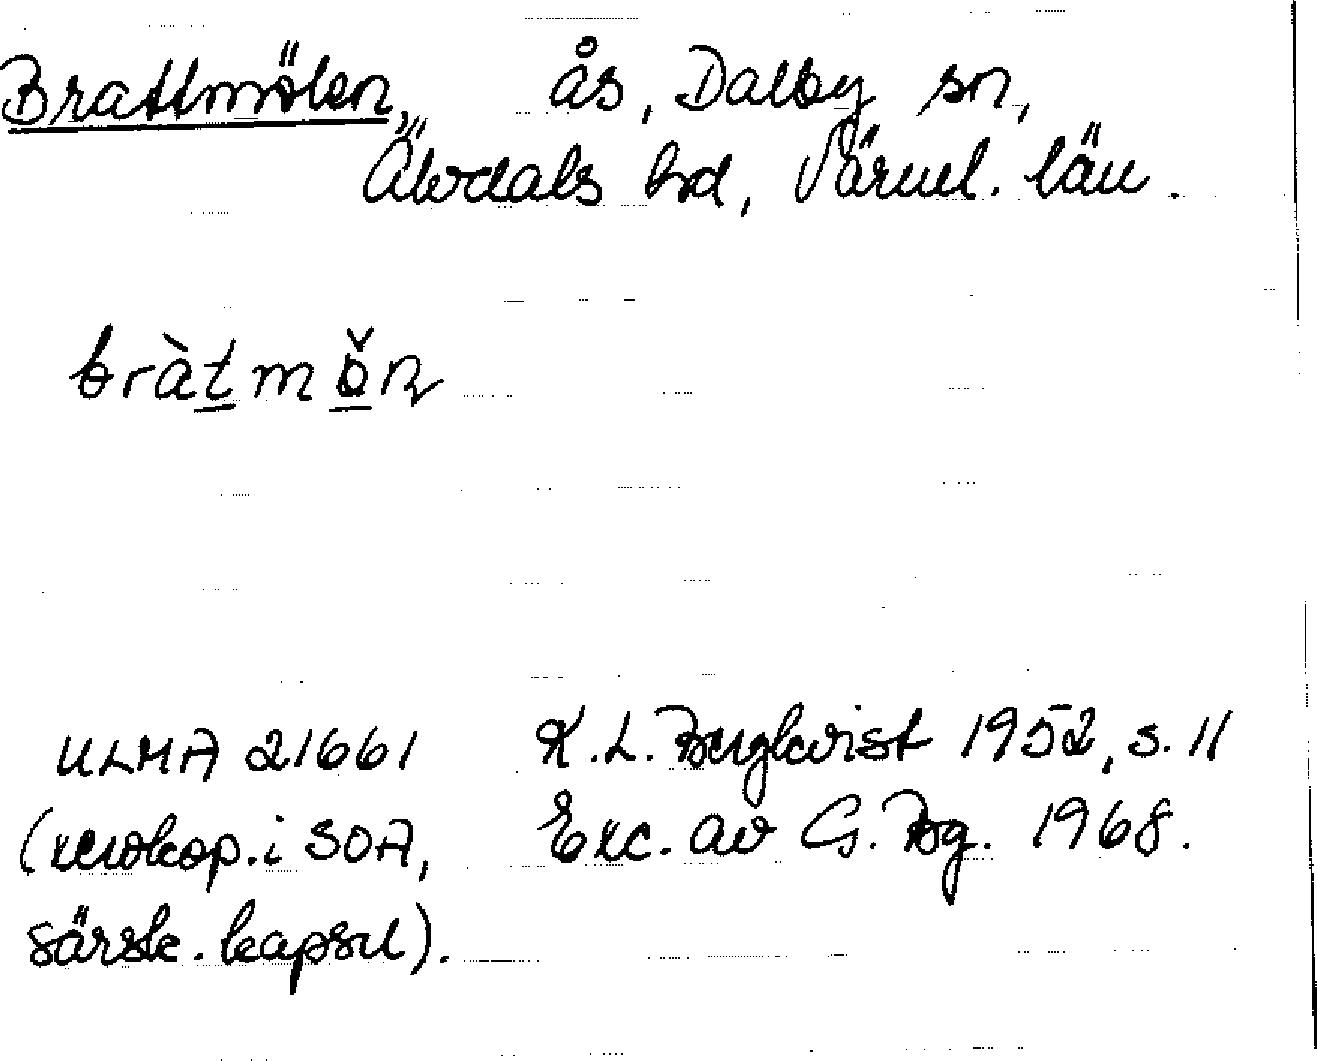 Brattmölen, ås, Dalby sn,
Älvdals hd, Värml. län.
bràtmǒ̱n
ULMA 21661 K.L. Bergkvist 1952, s. 11
(xerokop. i SOA, Exc. av G. Bg. 1968.
särsk. kapsel).